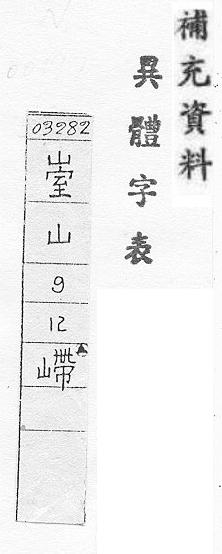 補充資料
異體字表
03282
山
9
12
嵽